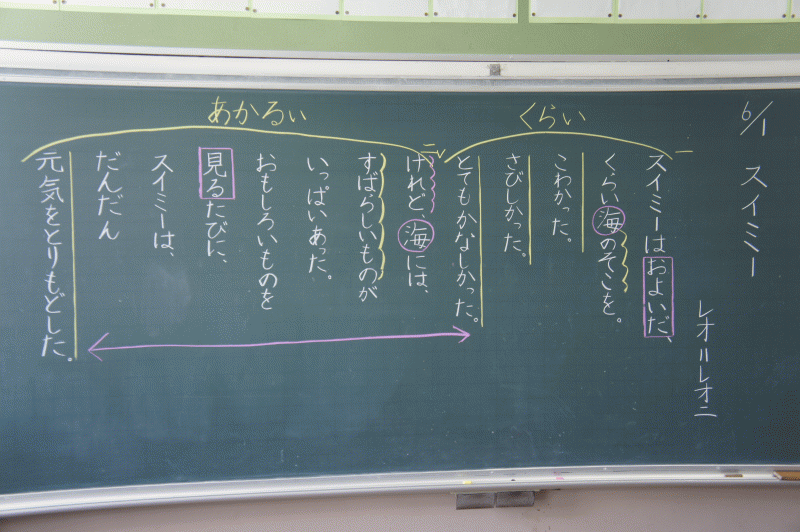 6/1 スイミー
レオ=レオニ
くらい
一
スイミーはおよいだ、
くらい海のそこを。
こわかった。
さびしかった。
とてもかなしかった。
あかるい
二
けれど、海には、
すばらしいものが
いっぱいあった。
おもしろいものを
見るたびに、
スイミーは、
だんだん
元気をとりもどした。